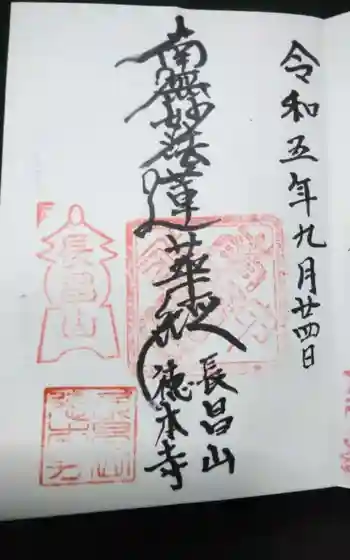 令和五年九月廿四日
南無妙法蓮華経
長昌山
徳本寺
長昌山